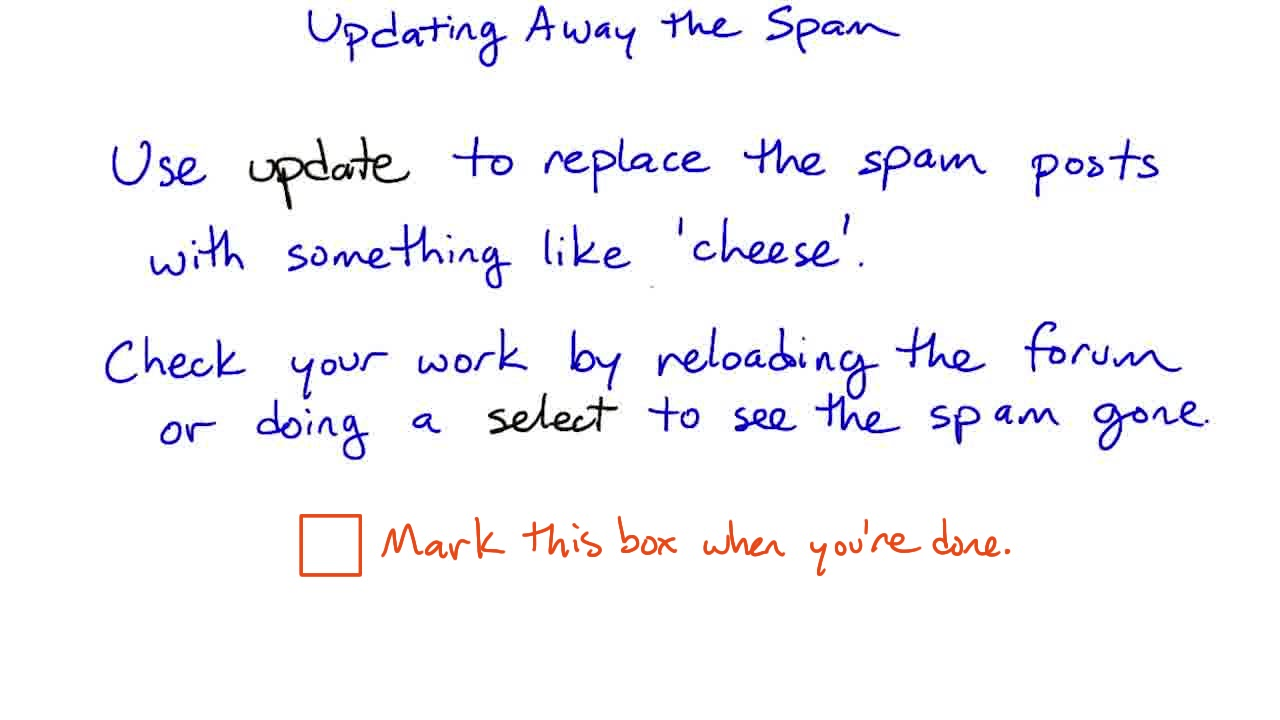 Updating Away the Spam
Use update to replace the spam posts
with something like 'cheese'.
Check your work by reloading the forum
or doing a select to see the spam gone.
Mark this box when you're done.